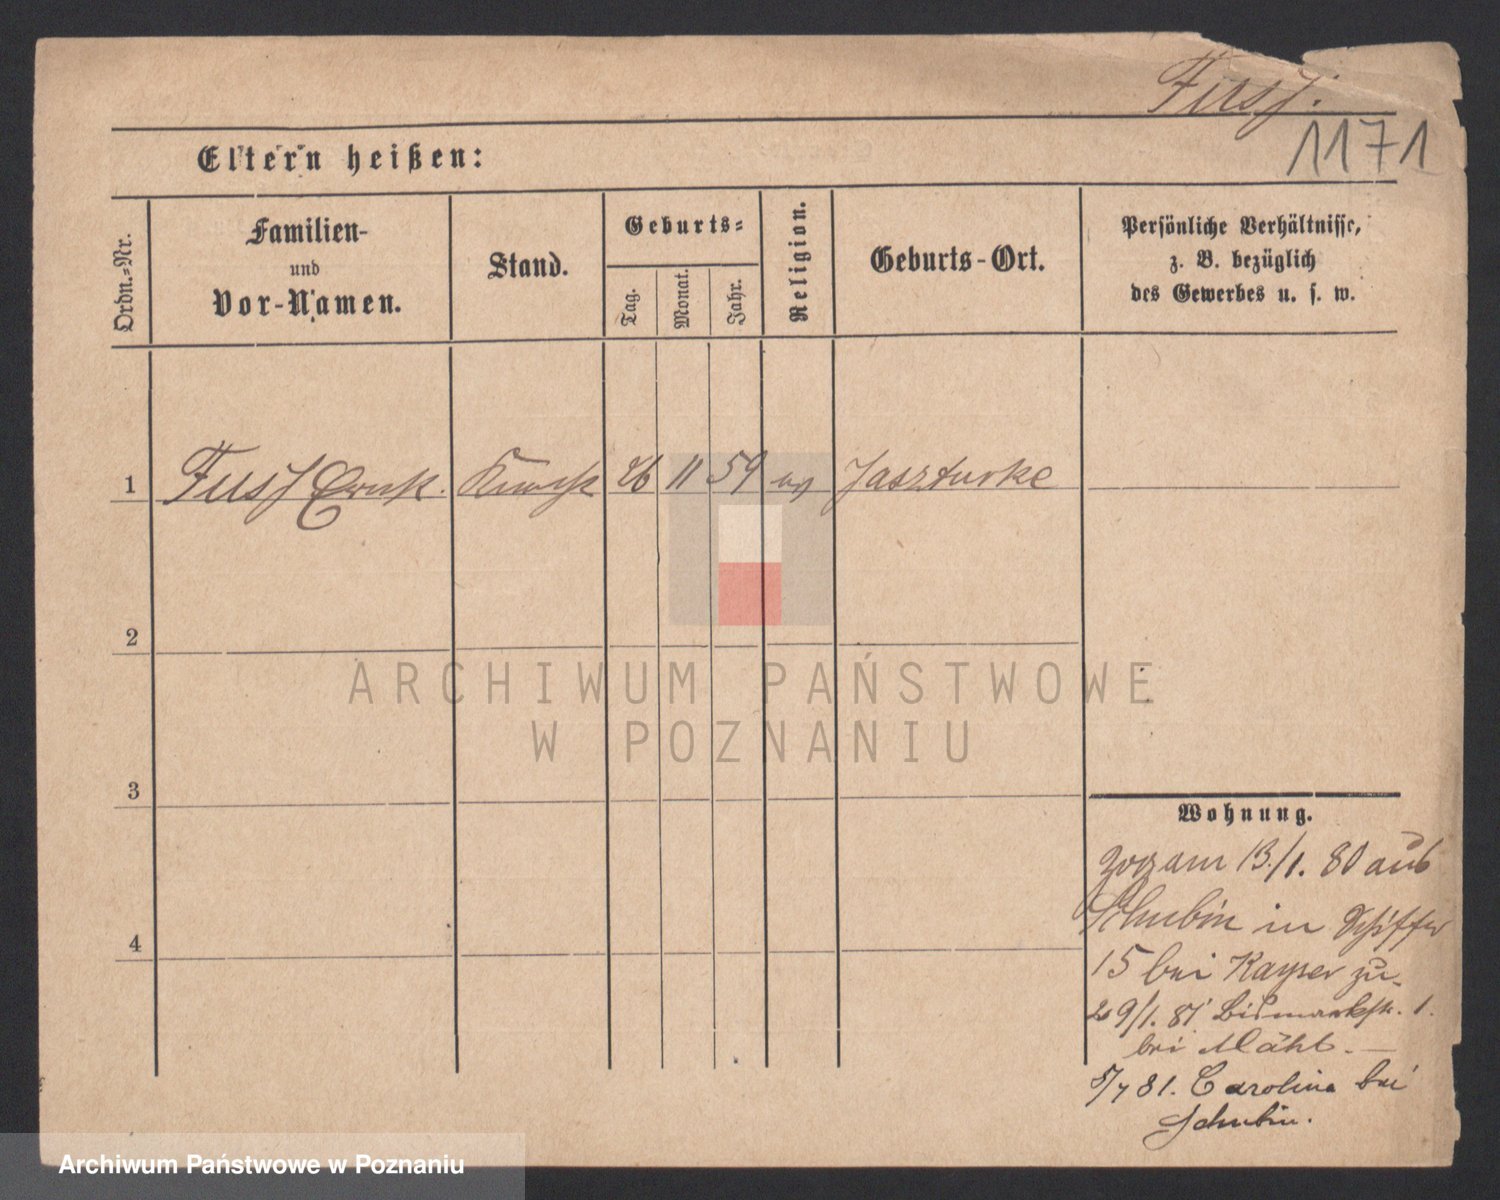 Fust.
1171
Eltern heißen:
Ordn.=Nr.
Familien-
und
Vor-Namen.
Stand.
Geburts=
Tag.
Monat.
Jahr.
Religion.
Geburts-Ort.
Persönliche Verhältnisse,
z. B. bezüglich
des Gewerbes u. s. w.
1 Fust 26 11 59 Jaszturke
2
3
4
ARCHIWUM PAŃSTWOWE
W POZNANIU
Wohnung.
zog am 13./1. 80 aus
Schubin in Schiffer
15 bei Kayser zu.
29/1. 81 Bismarkstr. 1.
bei
5/7 81. Carolina bei
Schubin.
Archiwum Państwowe w Poznaniu